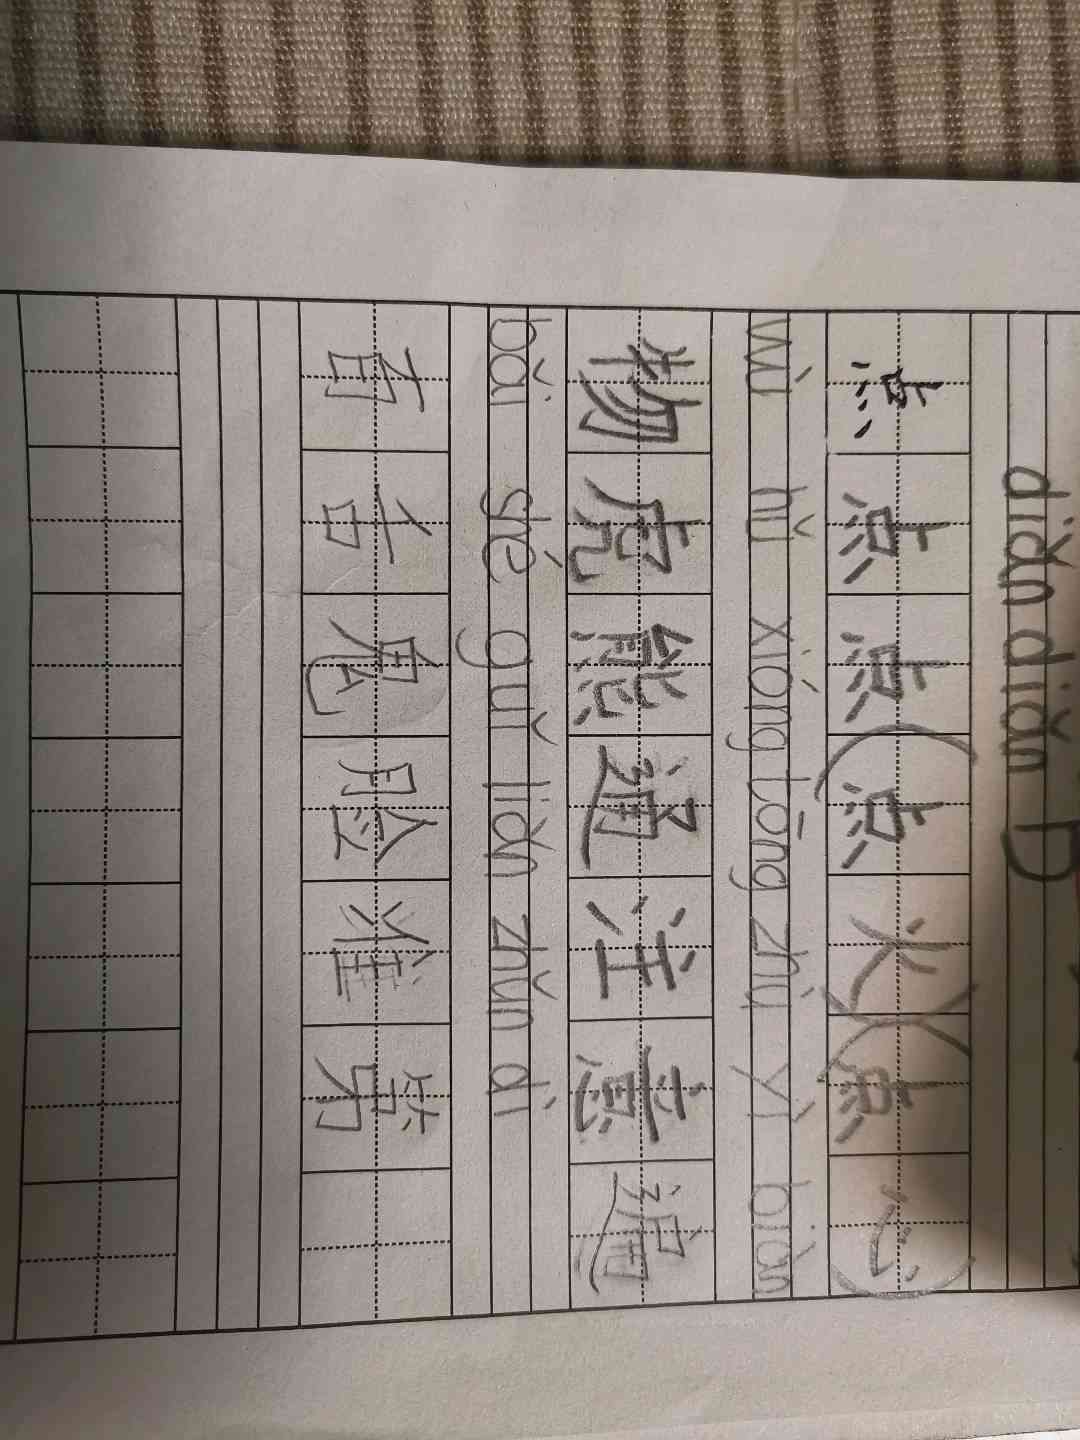 diǎn diǎn
点点点(点火)(点心)
wù hǔ xióng tōng zhù yì biàn
物虎熊通注意遍
bǎi shé guǐ liǎn zhǔn dì
百舌鬼脸准第